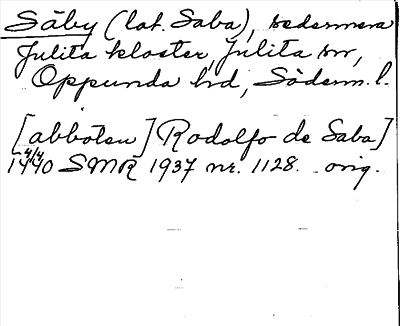 Säby (lat. Saba), sedermera
Julita kloster, Julita sn,
Oppunda hd, Söderm. l.
[abboten] Rodolfo de Saba]
4/4
1440 SMR 1937 nr. 1128. orig.